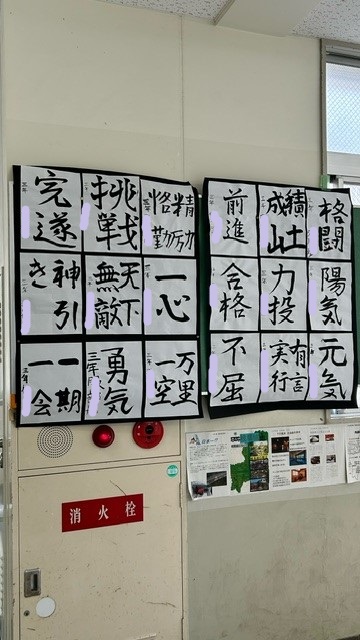 格闘
積土成山
前進
陽気
力投
合格
元気
有言実行
不屈
精励恪勤
挑戦
完遂
一心
天下無敵
神引き
万里一空
勇気
一期一会
消火栓